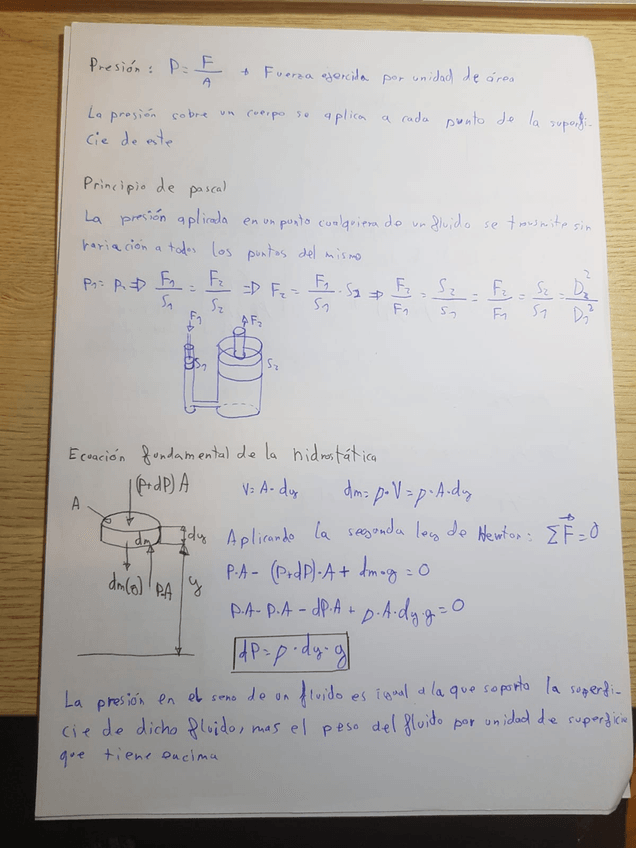 Presión: P = F/A → Fuerza ejercida por unidad de área
La presión sobre un cuerpo se aplica a cada punto de la superfi-
cie de este
Principio de pascal
La presión aplicada en un punto cualquiera de un fluido se trasmite sin
variación a todos los puntos del mismo
P1 = P2 ⇒ F1/S1 = F2/S2 ⇒ F2 = F1/S1 · S2 ⇒ F2/F1 = S2/S1 = F2/F1 = S2/S1 = D2²/D1²
F1 F2
S1 S2
Ecuación fundamental de la hidrostática
(P+dP) A V = A · dy dm = ρ · V = ρ · A · dy
A
dm dy Aplicando la segunda ley de Newton: ΣF⃗ = 0
dm(g) P·A y P·A - (P+dP)·A + dm·g = 0
P·A - P·A - dP·A + ρ·A·dy·g = 0
dP = ρ · dy · g
La presión en el seno de un fluido es igual a la que soporta la superfi-
cie de dicho fluido, mas el peso del fluido por unidad de superficie
que tiene encima